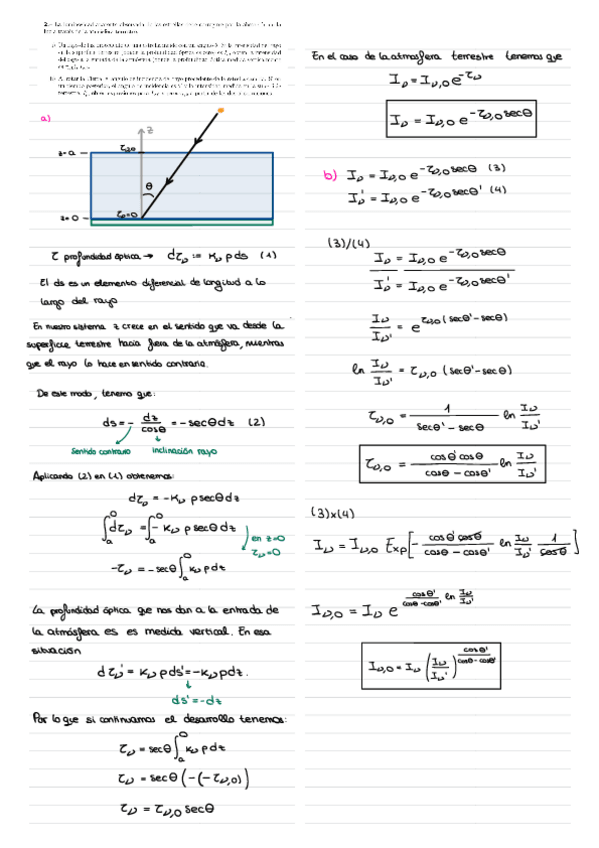 a)
z
z=a
τν,0
θ
z=0
τν=0
τ profundidad óptica → dτν := κν ρ ds (1)
El ds es un elemento diferencial de longitud a lo
largo del rayo
En nuestro sistema z crece en el sentido que va desde la
superficie terrestre hacia fuera de la atmósfera, mientras
que el rayo lo hace en sentido contrario.
De este modo, tenemo que:
ds = - dz/cosθ = - secθ dz (2)
Sentido contrario inclinación rayo
Aplicando (2) en (1) obtenemos:
dτν = -κν ρ secθ dz
∫ₐ⁰ dτν = ∫ₐ⁰ - κν ρ secθ dz
en z=0
τν=0
-τν = -secθ ∫ₐ⁰ κν ρ dz
La profundidad óptica que nos dan a la entrada de
la atmósfera es es medida vertical. En esa
situación
dτν' = κν ρ ds' = -κν ρ dz.
ds' = -dz
Por lo que si continuamos el desarrollo tenemos:
τν = secθ ∫ₐ⁰ κν ρ dz
τν = secθ (-(-τν,0))
τν = τν,0 secθ
En el caso de la atmósfera terrestre tenemos que
Iν = Iν,0 e^(-τν)
Iν = Iν,0 e^(-τν,0 secθ)
b) Iν = Iν,0 e^(-τν,0 secθ) (3)
Iν' = Iν,0 e^(-τν,0 secθ') (4)
(3)/(4)
Iν = Iν,0 e^(-τν,0 secθ)
Iν' = Iν,0 e^(-τν,0 secθ')
Iν/Iν' = e^(τν,0 (secθ' - secθ))
ln Iν/Iν' = τν,0 (secθ' - secθ)
τν,0 = 1/(secθ' - secθ) ln Iν/Iν'
τν,0 = cosθ' cosθ/(cosθ - cosθ') ln Iν/Iν'
(3)x(4)
Iν = Iν,0 Exp[- cosθ' cosθ/(cosθ - cosθ') ln Iν/Iν' 1/cosθ]
Iν,0 = Iν e^(cosθ'/(cosθ - cosθ') ln Iν/Iν')
Iν,0 = Iν (Iν/Iν')^(cosθ'/(cosθ - cosθ'))